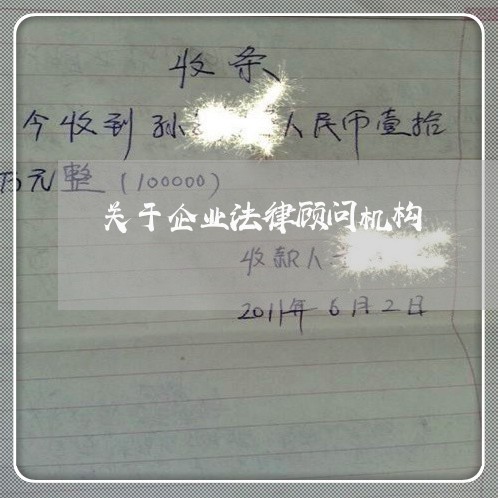 收条
今收到孙 人民币壹拾
万元整(100000)
关于企业法律顾问机构
收款人
2011年6月2日